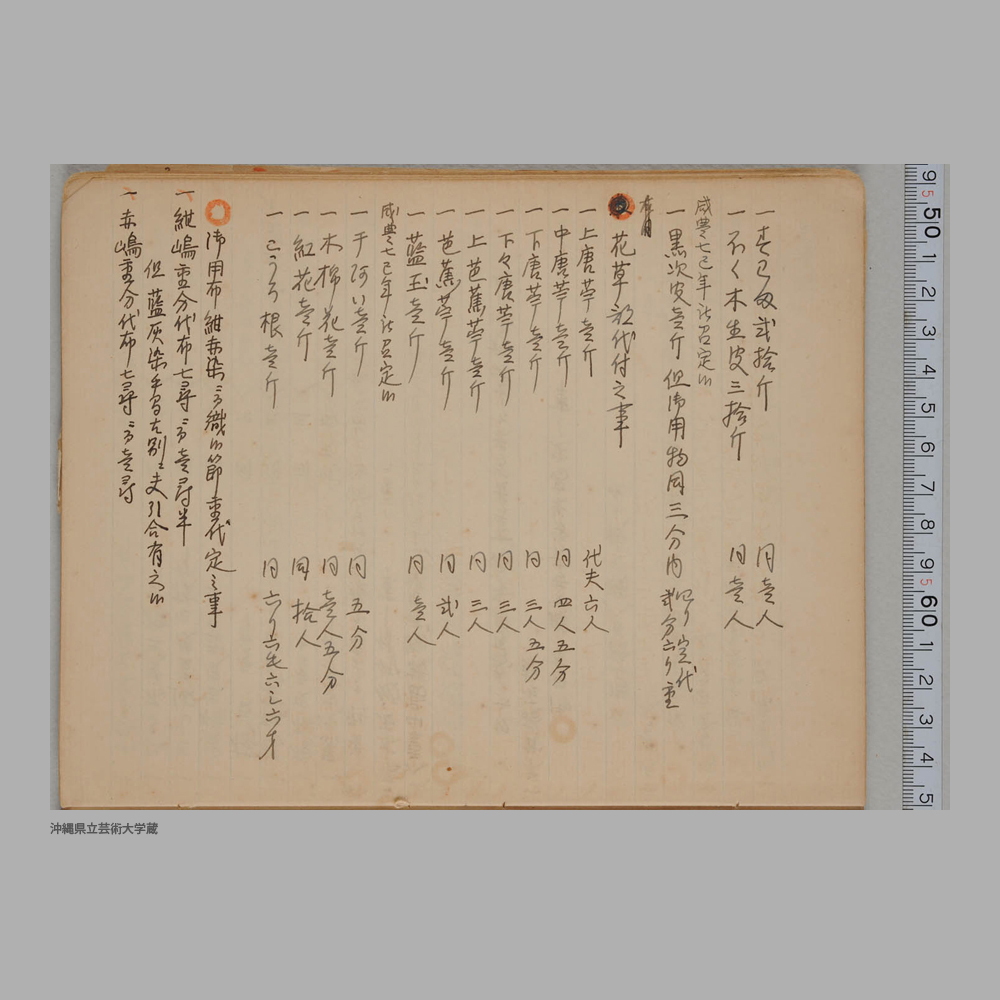 一 まこ皮弐拾斤 同壱人
一 不く木生皮三拾斤 同壱人
咸豊七巳年被召定候
一 黒次皮壱斤 但御用物同三分内 弐分六り重
本月
花草類代付之事
一 上唐苧壱斤 代夫六人
一 中唐苧壱斤 同四人五分
一 下唐苧壱斤 同三人五分
一 下々唐苧壱斤 同三人
一 上芭蕉苧壱斤 同三人
一 芭蕉苧壱斤 同弐人
一 藍玉壱斤 同壱人
咸豊七巳年被召定候
一 干阿い壱斤 同五分
一 木棉花壱斤 同壱人五分
一 紅花壱斤 同拾人
一 こうろ根壱斤 同六り六毛六し六才
御用布紺赤染ニ而織候節重代定之事
一 紺嶋重分代布七尋ニ而壱尋半
但藍灰染手間左別ニ夫引合有之候
一 赤嶋重分代布七尋ニ而壱尋
9 5 50 1 2 3 4 5 6 7 8 9 5 60 1 2 3 4 5
沖縄県立芸術大学蔵